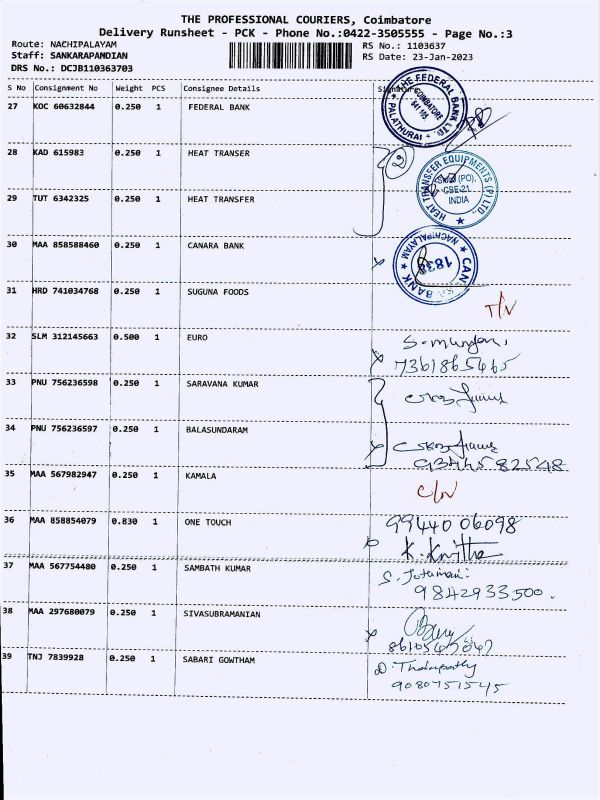 THE PROFESSIONAL COURIERS, Coimbatore
Delivery Runsheet - PCK - Phone No.:0422-3505555 - Page No.:3
Route: NACHIPALAYAM RS No.: 1103637
Staff: SANKARAPANDIAN RS Date: 23-Jan-2023
DRS No.: DCJB110363703
S No Consignment No Weight PCS Consignee Details Signature
27 KOC 60632844 0.250 1 FEDERAL BANK
THE FEDERAL BANK LTD. PALATHURAI COIMBATORE 641 105
28 KAD 615983 0.250 1 HEAT TRANSER
29 TUT 6342325 0.250 1 HEAT TRANSFER
HEAT TRANSFER EQUIPMENTS (P) LTD., (PO), CBE-21 INDIA
30 MAA 858588460 0.250 1 CANARA BANK
NACHIPALAYAM BANK
31 HRD 741034768 0.250 1 SUGUNA FOODS
32 SLM 312145663 0.500 1 EURO
33 PNU 756236598 0.250 1 SARAVANA KUMAR
34 PNU 756236597 0.250 1 BALASUNDARAM
35 MAA 567982947 0.250 1 KAMALA
36 MAA 858854079 0.830 1 ONE TOUCH 99440 06098
37 MAA 567754480 0.250 1 SAMBATH KUMAR
9842933500.
38 MAA 297680079 0.250 1 SIVASUBRAMANIAN
39 TNJ 7839928 0.250 1 SABARI GOWTHAM
9080751545